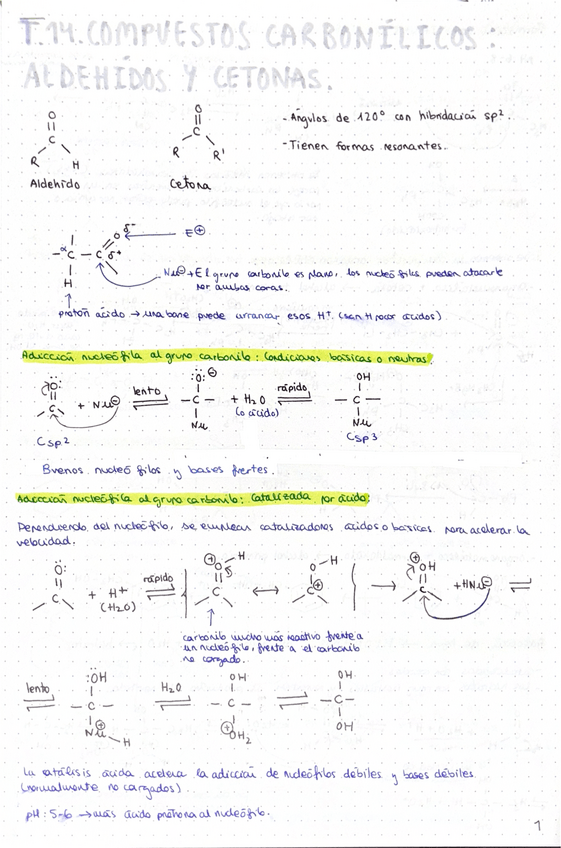 T.14. COMPUESTOS CARBONÍLICOS:
ALDEHÍDOS Y CETONAS.
O
C
R H
Aldehído
O
C
R R'
Cetona
- Ángulos de 120° con hibridación sp².
- Tienen formas resonantes.
O δ- E⊕
- αC - C δ+
H
Nu⊖ → El grupo carbonilo es plano, los nucleófilos pueden atacarle
por ambas caras.
protón ácido → una base puede arrancar esos H⁺. (son H poco ácidos).
Adicción nucleófila al grupo carbonilo: Condiciones básicas o neutras.
:O: + Nu⊖ lento :O:⊖ - C - Nu + H2O (o ácido) rápido OH - C - Nu
Csp2 Csp3
Buenos nucleófilos y bases fuertes.
Adicción nucleófila al grupo carbonilo: Catalizada por ácido:
Dependiendo del nucleófilo, se emplean catalizadores ácidos o básicos para acelerar la
velocidad.
O: C + H+ (H2O) rápido ⊕O - H C ↔ O - H C⊕ → ⊕OH C + HNu⊖
carbonilo mucho más reactivo frente a
un nucleófilo, frente a el carbonilo
no cargado.
lento :OH - C - Nu⊕ - H H2O OH - C - ⊕OH2 OH - C - OH
La catálisis ácida acelera la adicción de nucleófilos débiles y bases débiles
(normalmente no cargados).
pH: 5-6 → más ácido protona al nucleófilo.
1